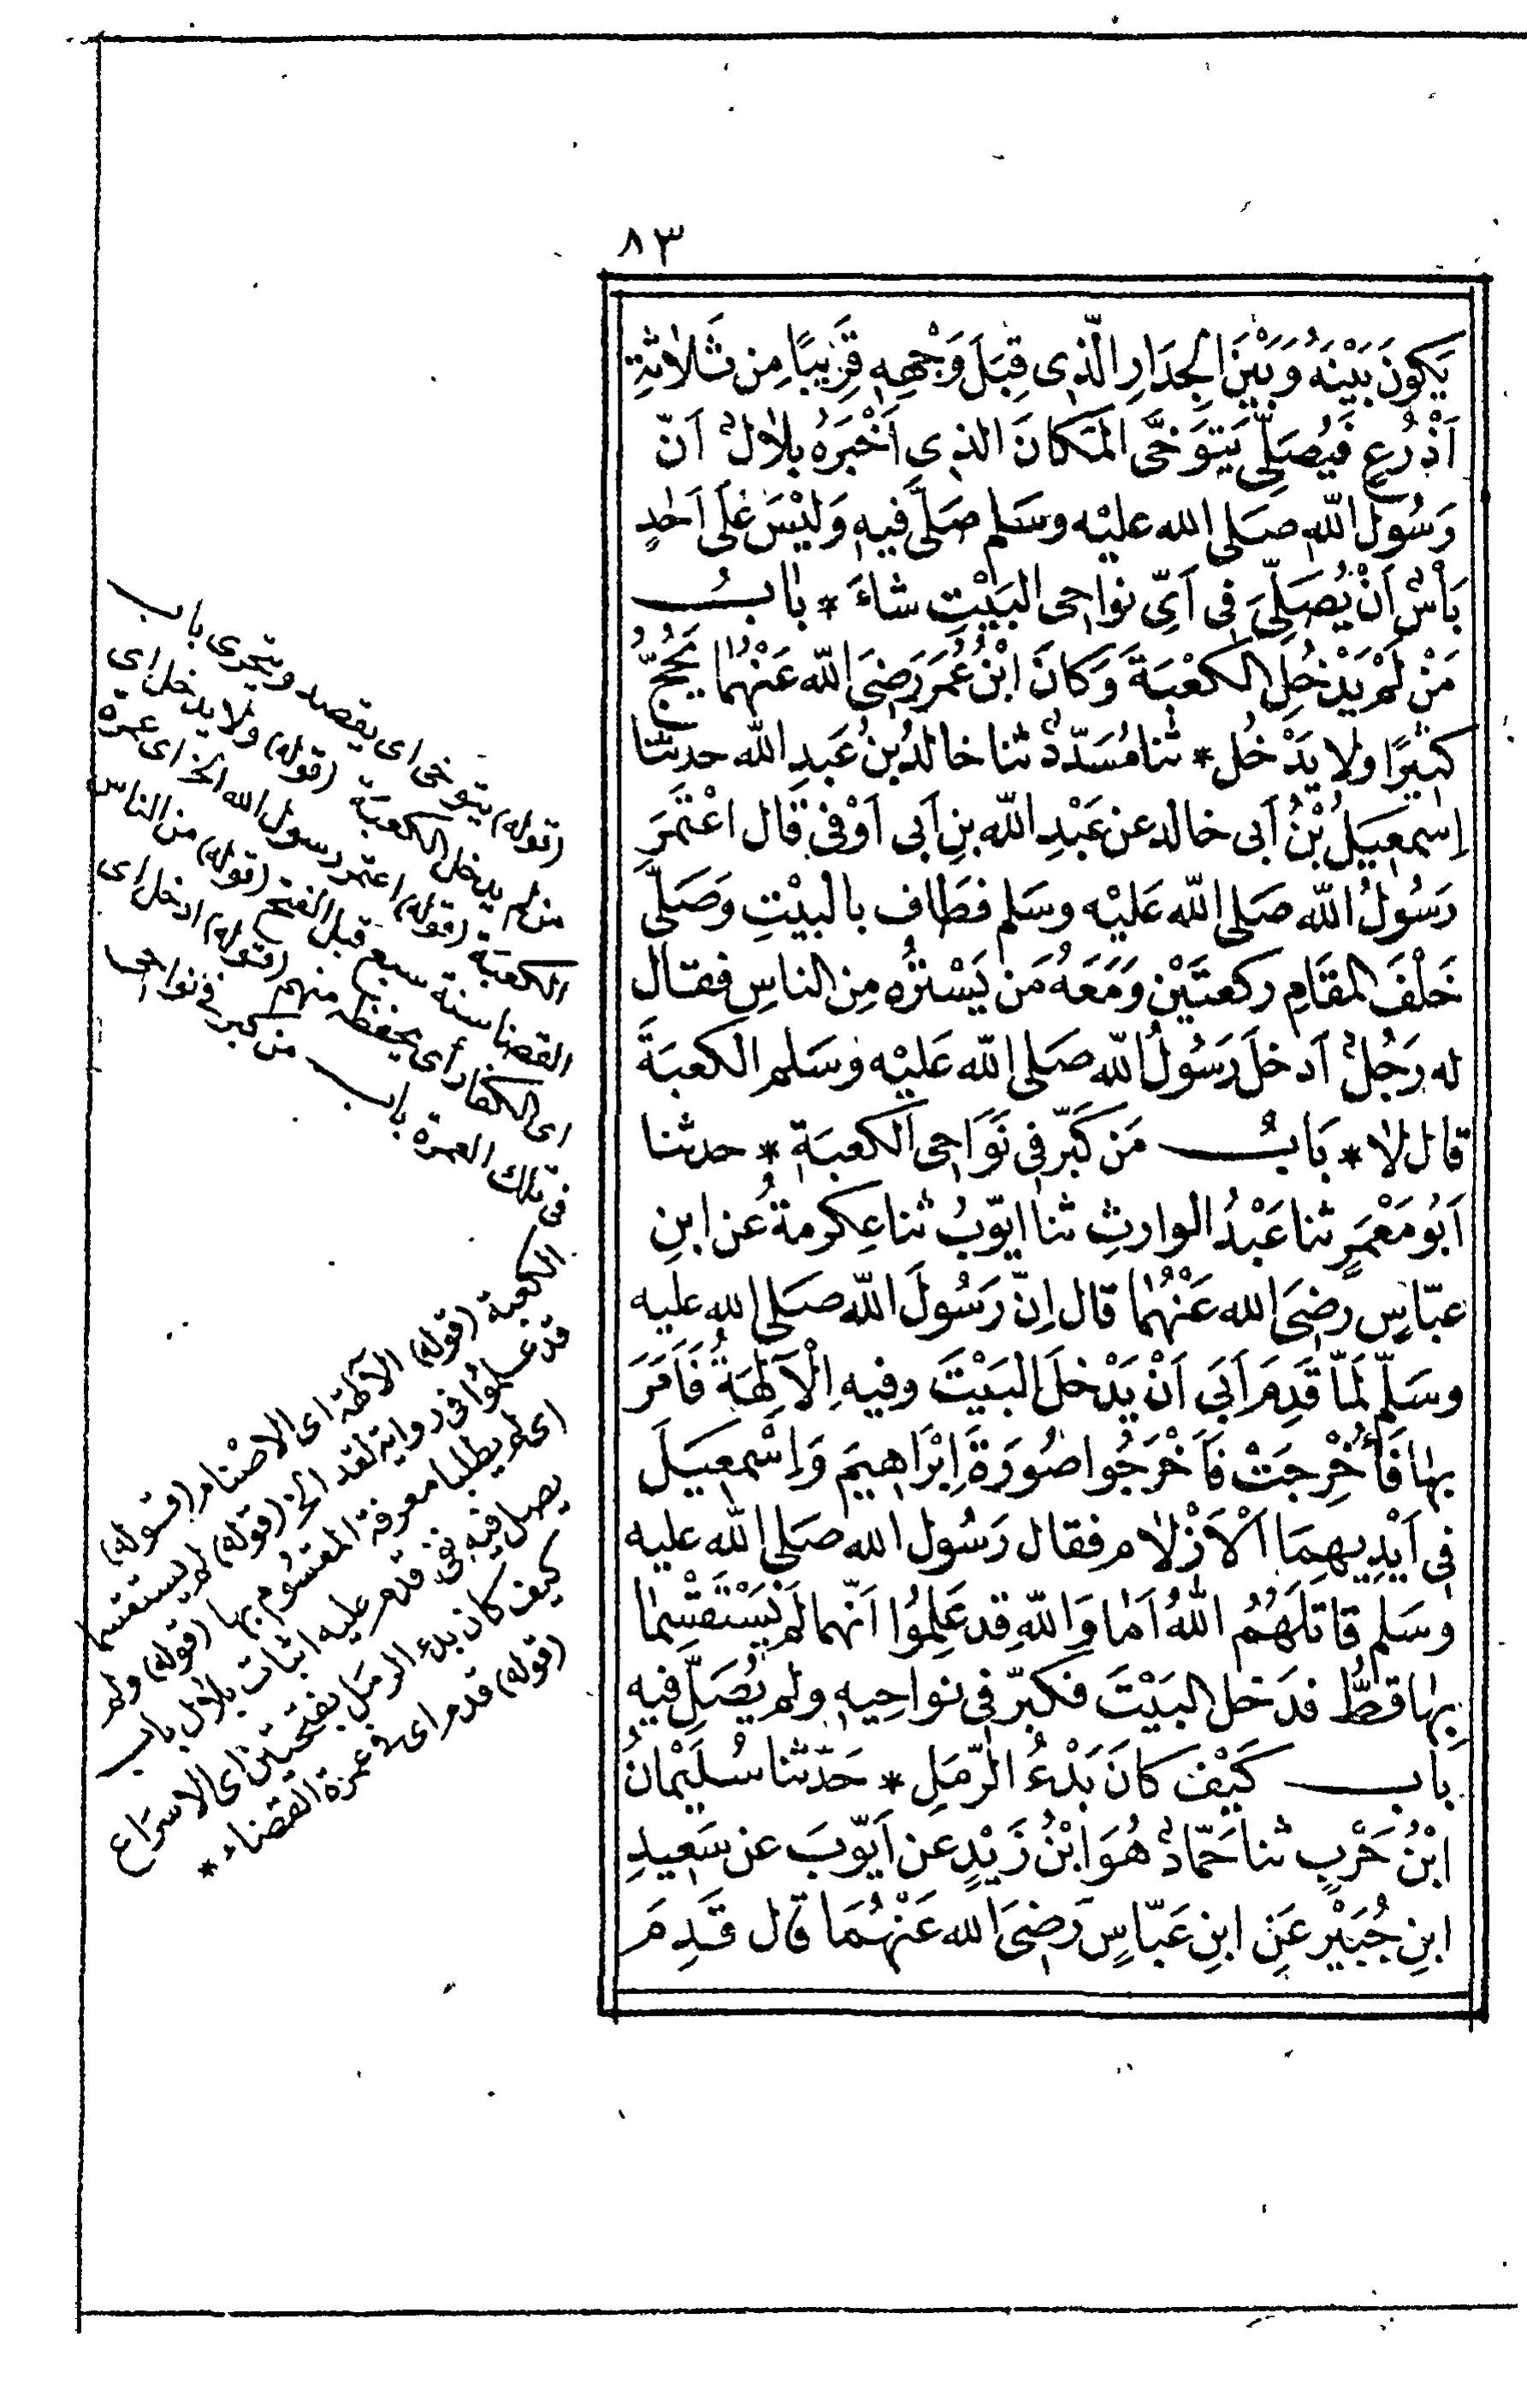 ٨٣
يَكُونَ بَيْنَهُ وَبَيْنَ الجِدَارِ الَّذِى قِبَلَ وَجْهِهِ قَرِيبًا مِن ثَلَاثَةِ
اَذْرُعٍ فَيُصَلِّى يَتَوَخَّى المَكَانَ الذِى اَخْبَرَهُ بِلَالٌ اَنّ
رَسُولَ اللّٰهِ صَلى الله عليْه وسَلم صَلَّى فِيهِ وَلَيْسَ عَلَى اَحَدٍ
بَأْسٌ اَنْ يُصَلِّىَ فِى اَىِّ نوَاحِى البَيْتِ شاءَ * بابُ
مَنْ لَمْ يَدْخُلِ الكَعْبَةَ وَكَانَ ابْنُ عُمَرَ رَضِىَ الله عَنْهُمَا يَحُجُّ
كَثِيرًا ولا يَدْخُل * ثنا مُسَدَّدٌ ثنا خالدُ بنُ عَبدِ الله حدثنا
اِسمعِيلُ بْنُ اَبى خالد عن عَبْدِ اللّٰه بنِ اَبى اَوْفى قَال اعْتَمَرَ
رَسُولُ اللّٰه صَلى الله عَليْه وسَلم فطَاف بالبيْتِ وَصَلَّى
خَلْفَ المقَامِ ركعتَيْن وَمَعَهُ مَن يَسْتُرُهُ مِن الناسِ فقال
له رَجُلٌ اَدخلَ رَسُولُ اللّٰه صَلى الله عَليْه وسَلم الكعبَةَ
قال لا * بَابُ مَن كَبَّر فى نَوَاحِى الكعبَةِ * حدثنا
اَبُو مَعْمَرٍ ثنا عَبْدُ الوارثِ ثنا ايّوبُ ثنا عِكرمةُ عن ابنِ
عبّاسٍ رَضِىَ الله عَنْهُمَا قال اِنّ رَسُولَ اللّٰه صَلى الله عليه
وسَلّم لَمّا قَدِمَ اَبَى اَنْ يَدْخلَ البَيْتَ وفيه اِلْآلِهَةُ فَاَمَرَ
بِهَا فَأُخْرِجَتْ فَاَخْرَجُوا صُورَةَ اِبْرَاهِيمَ وَاِسْمعِيلَ
فِى اَيْدِيهِمَا اَلْاَزْلَام فقال رَسُول الله صَلى الله عليه
وسَلم قاتَلَهُمُ اللّٰهُ اَمَا وَاللّٰهِ قد عَلِمُوا اَنّهما لَمْ يَسْتَقْسِمَا
بِهَا قَطُّ فدَخل البَيْتَ فكبّر فى نواحِيهِ ولم يُصَلِّ فيه
باب كَيْفَ كانَ بَدْءُ الرَّمَلِ * حَدّثنا سُلَيْمَانُ
ابْنُ حَرْبٍ ثنا حَمّادٌ هُوَ ابْنُ زَيْدٍ عن اَيّوبَ عن سَعِيدِ
ابنِ جُبَيْرٍ عَنِ ابنِ عَبّاسٍ رَضِىَ الله عَنْهُمَا قال قَدِمَ
(قوله) يتوخى اى يقصد ويتحرى باب
من لم يدخل الكعبَة (قوله) ولا يدخل اى
الكعبَة (قوله) اعتمر رسول الله الخ اى عمرة
القضا سنة سبع قبل الفتح (قوله) من الناس
اى الكفار أى يحفظه منهم (قوله) ادخل اى
فى تلك العمرة باب من كبر فى نواحى
الكعبة (قوله) الآلهة اى الاصنام (قوله)
قد علموا فى رواية لقد الخ (قوله) لم يستقسما
اى لم يطلبا معرفة المقسوم بها (قوله) ولم
يصل فيه نفى قدم عليه اثبات بلال باب
كيف كان بدء الرمَل بفتحتين اى الاسرَاع
(قوله) قدم اى فى عمرة القضاء *